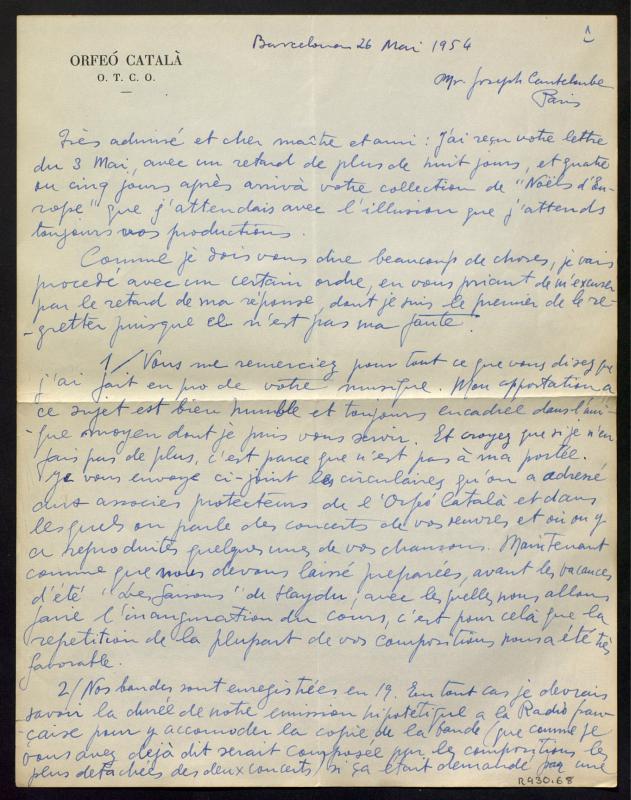 1
ORFEÓ CATALÀ
O. T. C. O.
Barcelona 26 Mai 1954
Mr. Joseph Canteloube
Paris
Très admiré et cher maître et ami : J'ai reçu votre lettre
du 3 Mai, avec un retard de plus de huit jours, et quatre
ou cinq jours après arrivà votre collection de "Noëls d'Eu-
rope" que j'attendais avec l'illusion que j'attends
toujours vos productions.
Comme je dois vous dire beaucoup de choses, je vais
procedé avec un certain ordre, en vous priant de m'excuser
par le retard de ma réponse, dont je suis le premier de le re-
-gretter puisque el n'est pas ma faute.
1/ Vous me remerciez pour tout ce que vous disez que
j'ai fait en pro de votre musique. Mon apportation a
ce sujet est bien humble et toujours encadrée dans l'uni-
que moyen dont je puis vous servir. Et croyez que si je n'en
fais pas de plus, c'est parce que n'est pas à ma portée.
Je vous envoye ci-joint les circulaires qu'on a adressé
aux associés protecteurs de l'Orfeó Català et dans
lesquels on parle des concerts de vos oeuvres et où on y
a reproduites quelques unes de vos chansons. Maintenant
comme que nous devons laissé preparées, avant les vacances
d'été "Les Saisons" de Haydn, avec lesquelles nous allons
faire l'inauguration du cours, c'est pour celà que la
repetition de la plupart de vos compositions nous a été très
favorable.
2/ Nos bandes sont enregistrées en 19. En tout cas je devrais
savoir la durée de notre emission hipotétique a la Radio fran-
çaise pour y accomoder la copie de la bande (que comme je
vous avez dejà dit serait composée par les compositions les
plus detachées des deux concerts) si ça était demandé par une
R930.68